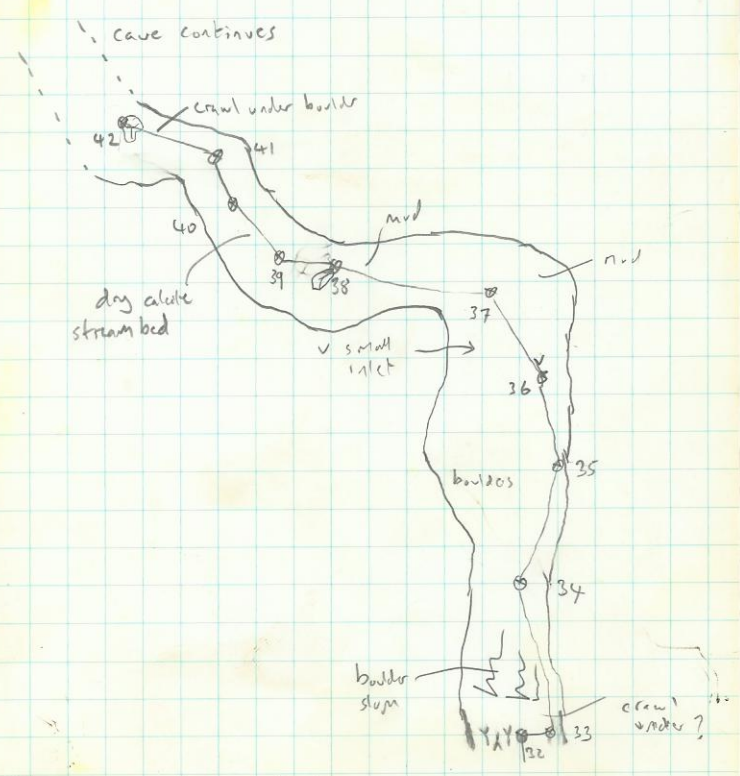 cave continues
crawl under boulder
42
41
40
mud
mud
39
38
dry calcite
stream bed
37
v small
inlet
36
35
boulders
34
boulder
crawl
33
32